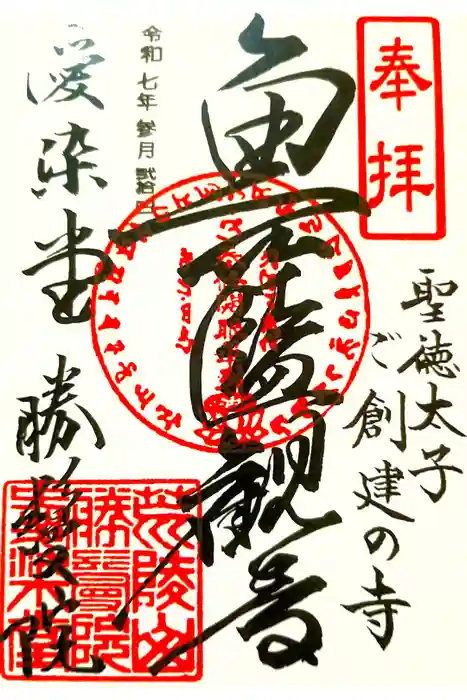 奉拝
聖徳太子
ご創建の寺
魚籃観音
令和七年参月弐拾日
愛染堂 勝鬘院
荒陵山
勝鬘院
愛染堂